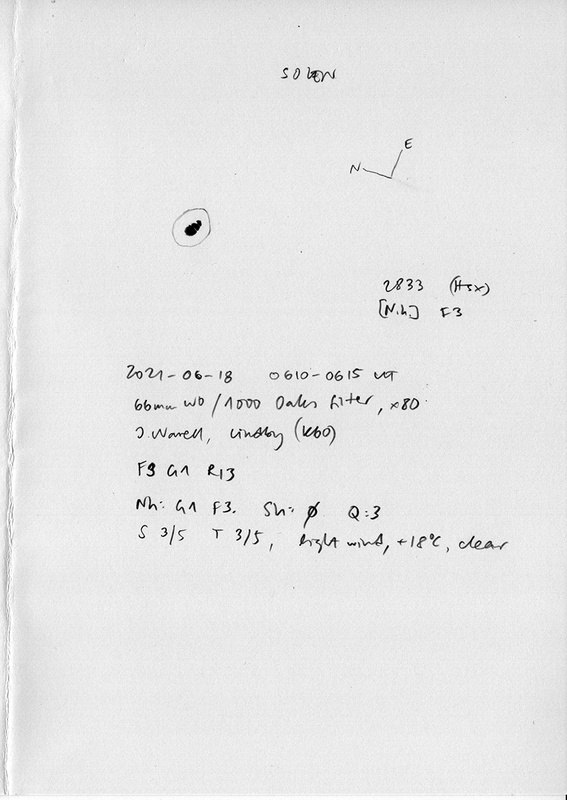 SOLEN
E
N
2833 (Hsx)
[N.h.] F3
2021-06-18 0610-0615 UT
66mm WO / 1000 Oaks filter, x80
J. Warell, Lindby (K60)
F3 G1 R13
Nh: G1 F3. Sh: ø Q:3
S 3/5 T 3/5, light wind, +18°C, clear